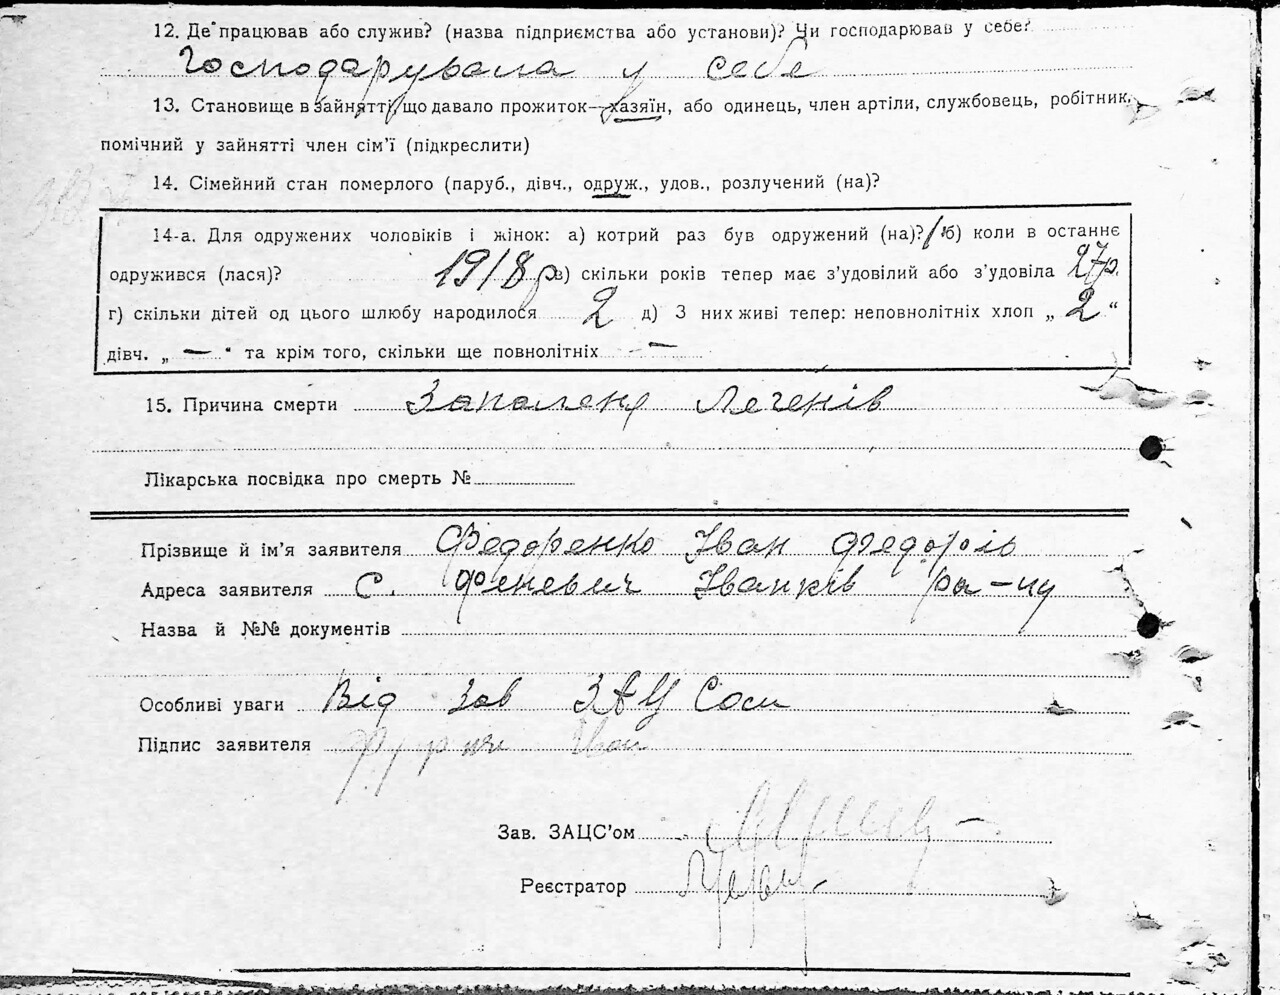 12. Де працював або служив? (назва підприємства або установи)? Чи господарював у себе?
Господарувала у себе
13. Становище в зайнятті, що давало прожиток—хазяїн, або одинець, член артілі, службовець, робітник,
помічний у зайнятті член сім'ї (підкреслити)
14. Сімейний стан померлого (паруб., дівч., одруж., удов., розлучений (на)?
14-а. Для одружених чоловіків і жінок: а) котрий раз був одружений (на)? 1 б) коли в останнє
одружився (лася)? 1918 р в) скільки років тепер має з'удовілий або з'удовіла 27 р.
г) скільки дітей од цього шлюбу народилося 2 д) З них живі тепер: неповнолітніх хлоп „ 2 “
дівч. „ — “ та крім того, скільки ще повнолітніх —
15. Причина смерти Запаленя Легенів
Лікарська посвідка про смерть №
Прізвище й ім'я заявителя Федоренко Іван
Адреса заявителя С. Феневич Іванків ра-ну
Назва й №№ документів
Особливі уваги Від Зав ЗАЦ
Підпис заявителя Іван
Зав. ЗАЦС'ом
Реєстратор